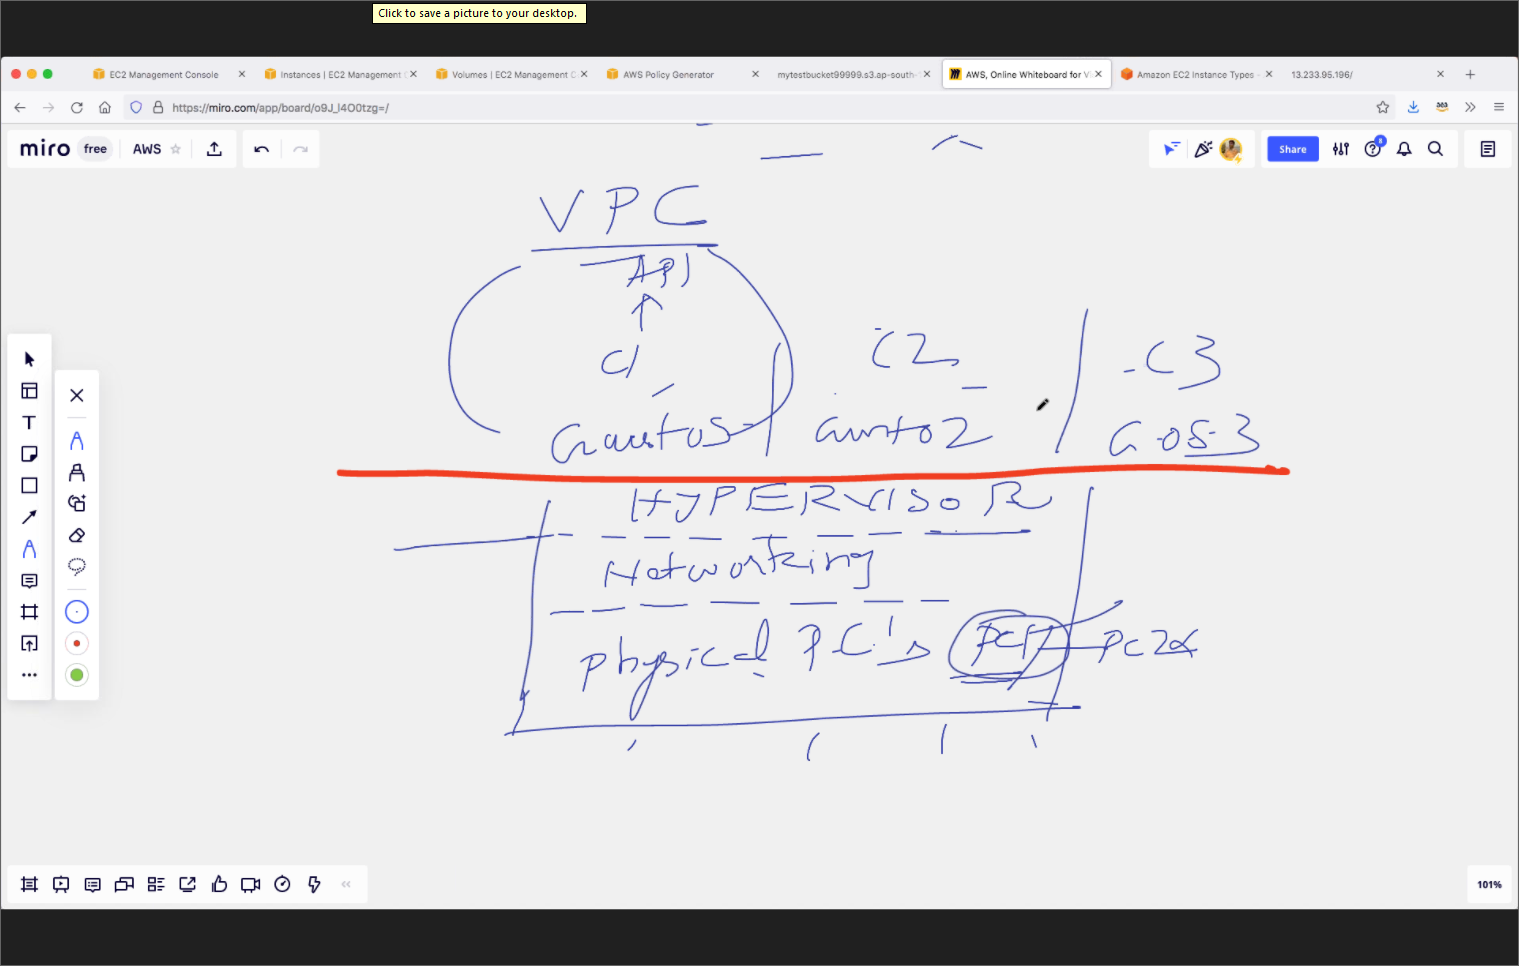 Click to save a picture to your desktop.
EC2 Management Console
Instances | EC2 Management
Volumes | EC2 Management C
AWS Policy Generator
mytestbucket99999.s3.ap-south-
AWS, Online Whiteboard for Vi
Amazon EC2 Instance Types -
13.233.95.196/
https://miro.com/app/board/o9J_l4O0tzg=/
miro free AWS
Share
8
VPC
API
C1
C2
C3
Guest OS
G-OS-3
HYPERVISOR
Networking
Physical PC's PC1 PC2
101%